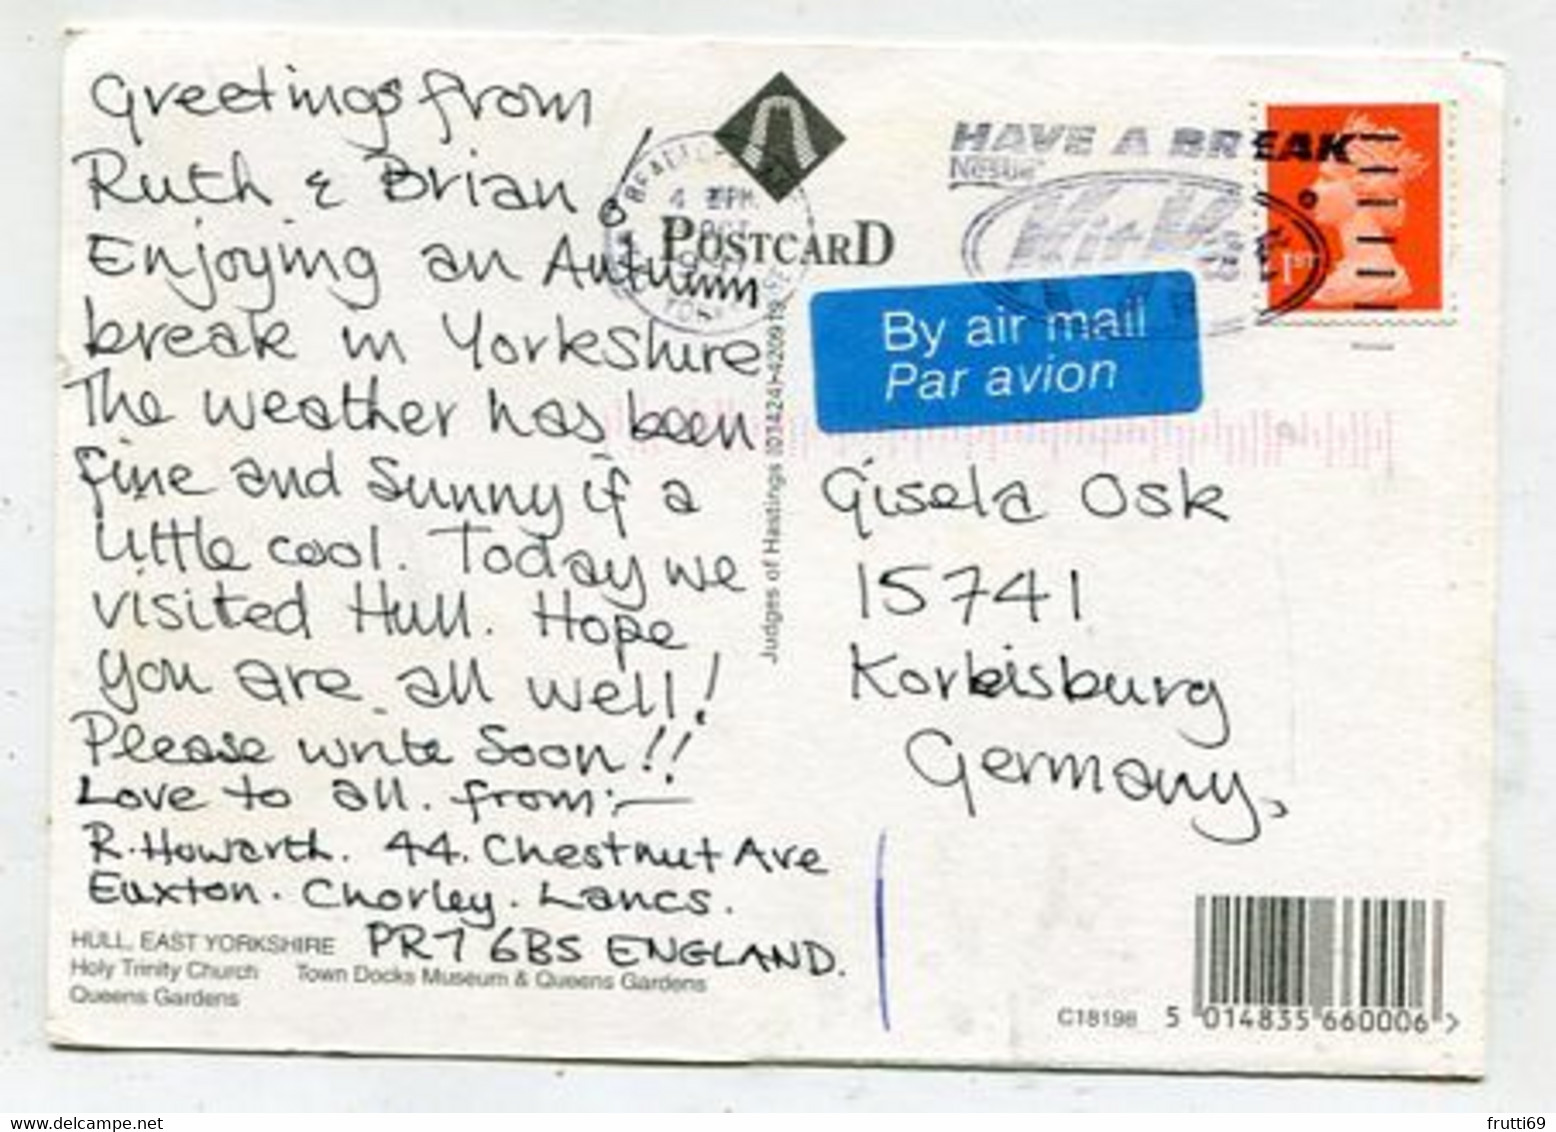 Greetings from
Ruth & Brian,
Enjoying an Autumn
break in Yorkshire
The weather has been
fine and Sunny if a
little cool. Today we
visited Hull. Hope
you are all well!
Please write Soon!!
Love to all. from:-
R. Howarth. 44. Chestnut Ave
Euxton. Chorley. Lancs.
PR7 6BS ENGLAND.
HULL, EAST YORKSHIRE
Holy Trinity Church Town Docks Museum & Queens Gardens
Queens Gardens
POSTCARD
Judges of Hastings (01424) 420919
4 PM
OCT
HAVE A BREAK
Nestlé
KitKat
1ST
By air mail
Par avion
Gisela Osk
15741
Korbisburg
Germany,
C18198 5 014835 660006 >
frutti69